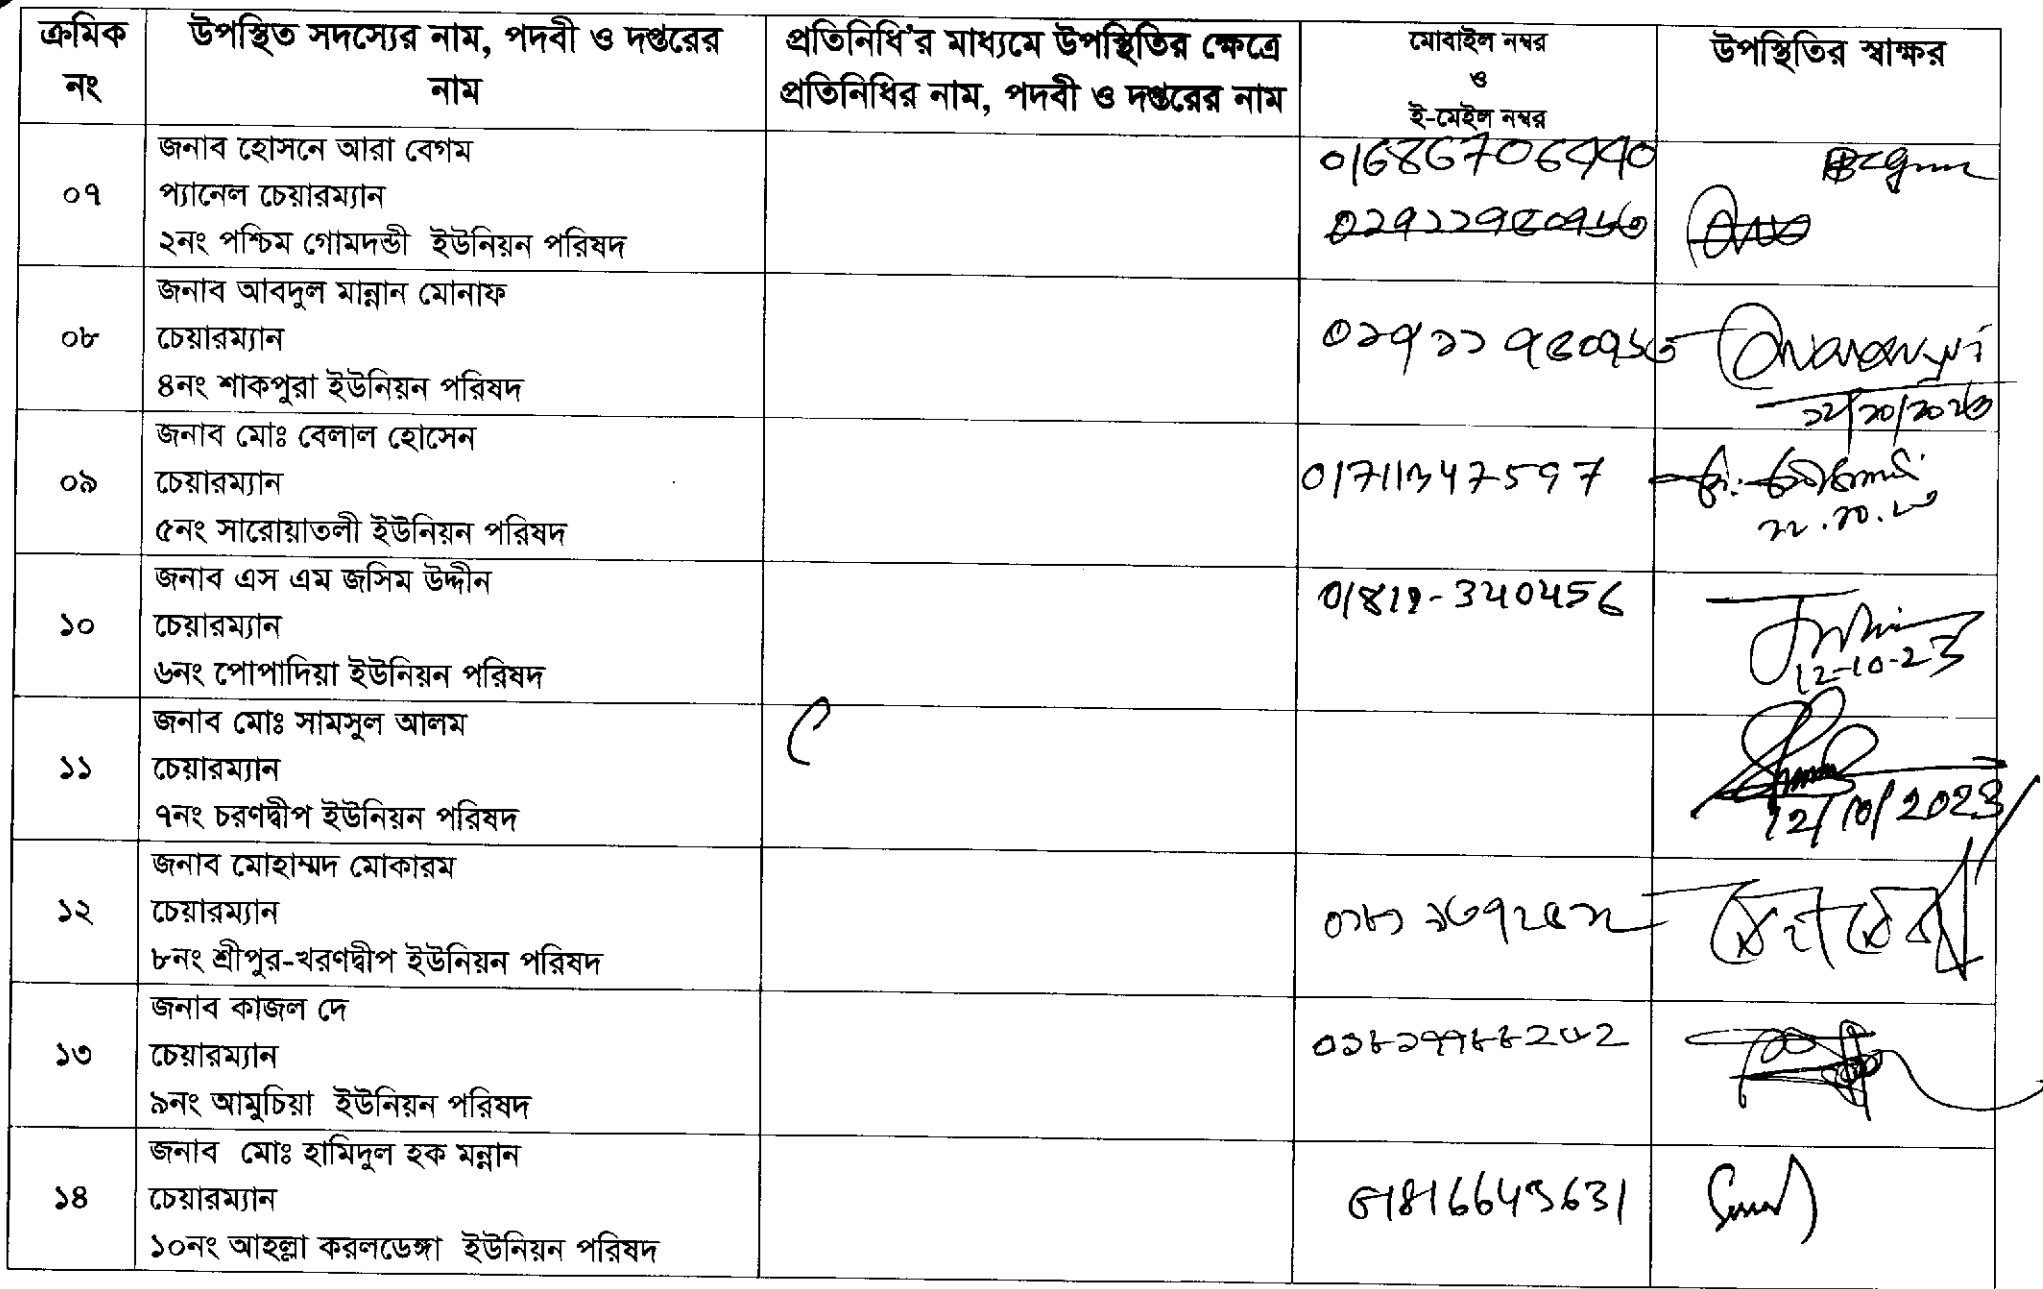 ক্রমিক নং
উপস্থিত সদস্যের নাম, পদবী ও দপ্তরের নাম
প্রতিনিধি'র মাধ্যমে উপস্থিতির ক্ষেত্রে
প্রতিনিধির নাম, পদবী ও দপ্তরের নাম
মোবাইল নম্বর
ও
ই-মেইল নম্বর
উপস্থিতির স্বাক্ষর
০৭
জনাব হোসনে আরা বেগম
প্যানেল চেয়ারম্যান
২নং পশ্চিম গোমদন্ডী ইউনিয়ন পরিষদ
০৮
জনাব আবদুল মান্নান মোনাফ
চেয়ারম্যান
৪নং শাকপুরা ইউনিয়ন পরিষদ
০৯
জনাব মোঃ বেলাল হোসেন
চেয়ারম্যান
৫নং সারোয়াতলী ইউনিয়ন পরিষদ
01711347597
১০
জনাব এস এম জসিম উদ্দীন
চেয়ারম্যান
৬নং পোপাদিয়া ইউনিয়ন পরিষদ
01819-340456
12-10-23
১১
জনাব মোঃ সামসুল আলম
চেয়ারম্যান
৭নং চরণদ্বীপ ইউনিয়ন পরিষদ
12/10/2023
১২
জনাব মোহাম্মদ মোকারম
চেয়ারম্যান
৮নং শ্রীপুর-খরণদ্বীপ ইউনিয়ন পরিষদ
১৩
জনাব কাজল দে
চেয়ারম্যান
৯নং আমুচিয়া ইউনিয়ন পরিষদ
১৪
জনাব মোঃ হামিদুল হক মন্নান
চেয়ারম্যান
১০নং আহল্লা করলডেঙ্গা ইউনিয়ন পরিষদ